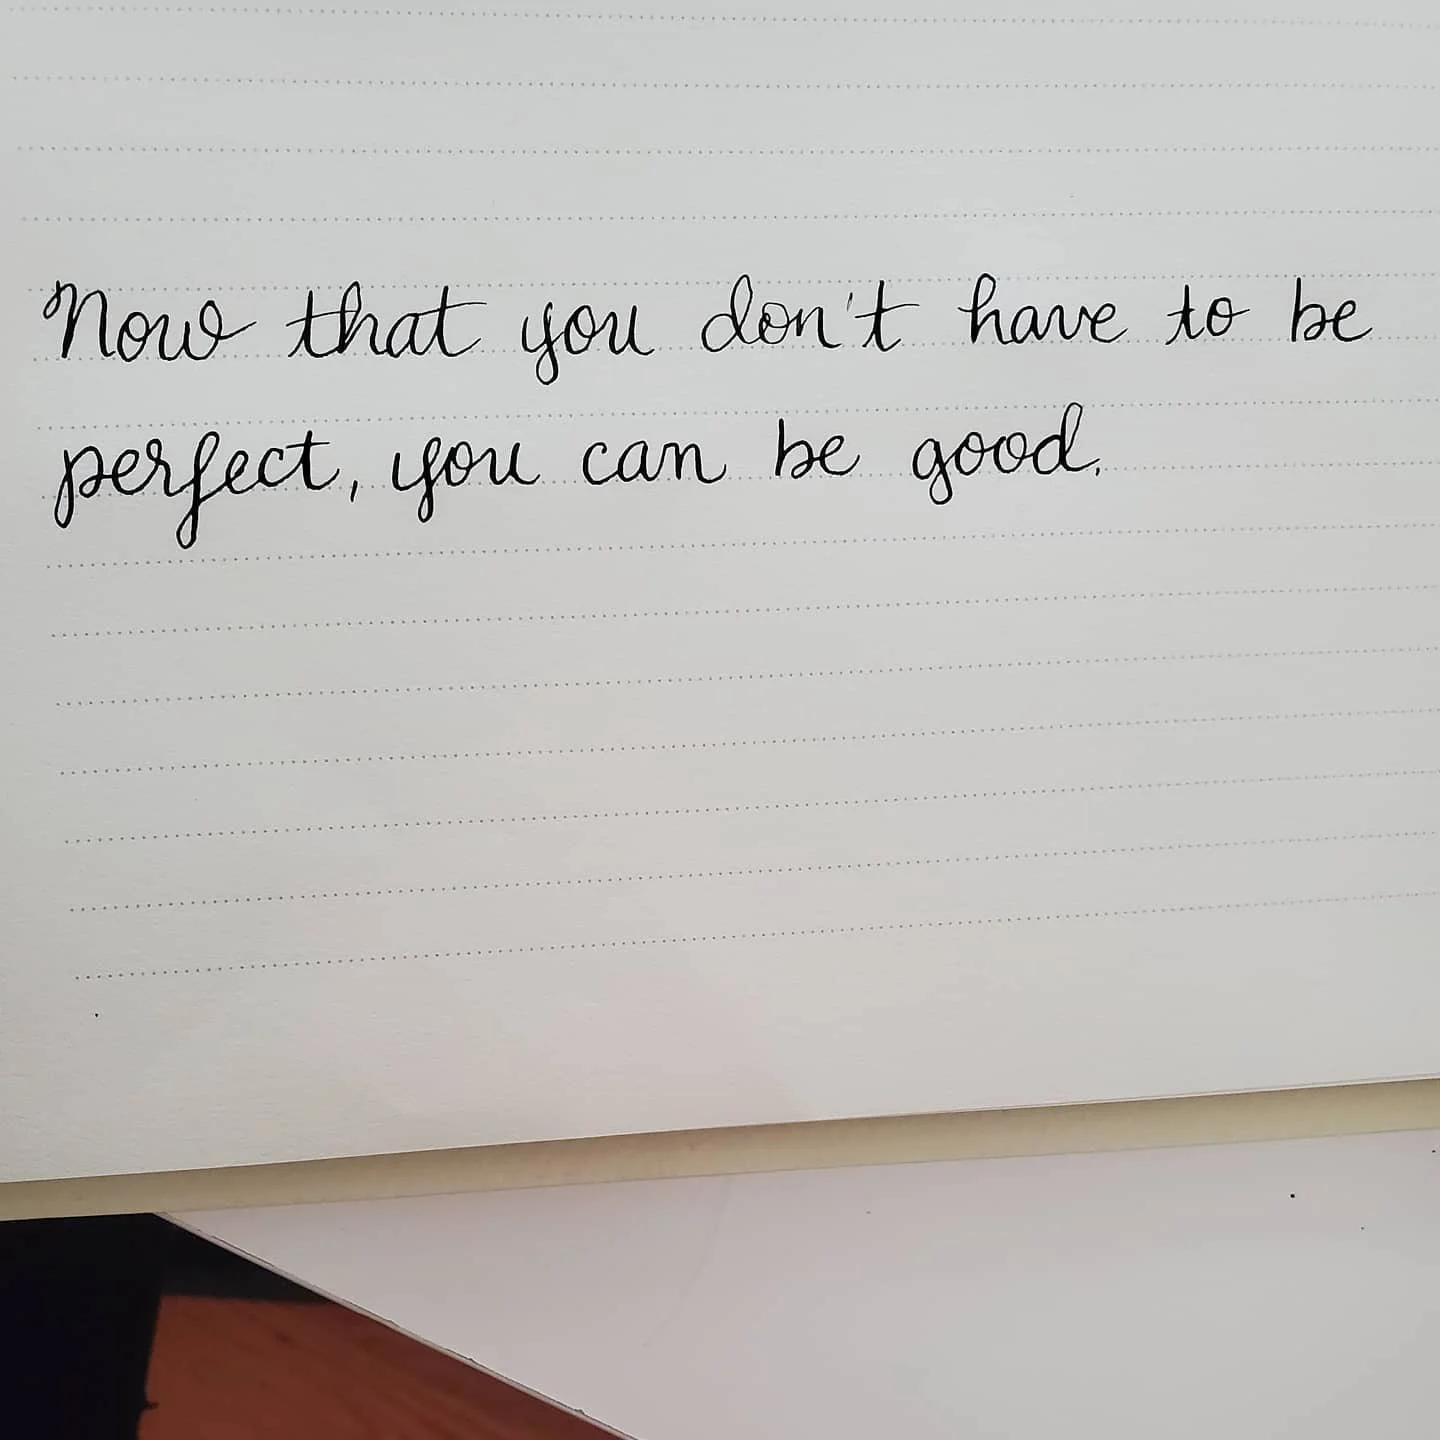 Now that you don't have to be
perfect, you can be good.